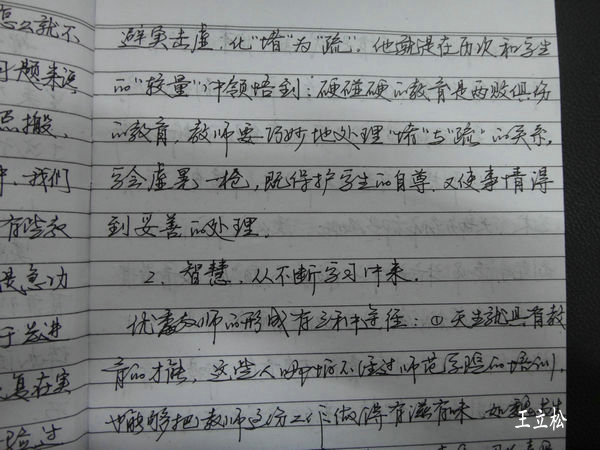 怎么就不
习题来讲
点搬、
我们
有些教
是急功
于英进
复在实
避实击虚,化“堵”为“疏”。他就是在历次和学生
的“较量”中领悟到:硬碰硬的教育是两败俱伤
的教育,教师要巧妙地处理“堵”与“疏”的关系,
学会虚晃一枪,既保护学生的自尊,又使事情得
到妥善的处理。
2、智慧,从不断学习中来。
优秀教师的形成有三种途径:①天生就具有教
育的才能,这些人哪怕不经过师范学院的培训,
也能够把教师这份工作做得有滋有味,如魏书生
王立松